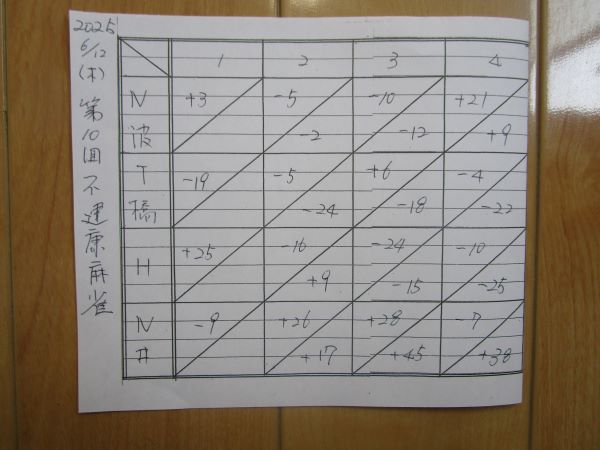 2025
6/12
(木)
第10回 不健康麻雀
1 2 3 4
N +3 -5 -10 +21
波 -2 -12 +9
T -19 -5 +6 -4
橋 -24 -18 -22
H +25 -16 -24 -10
+9 -15 -25
N -9 +26 +28 -7
井 +17 +45 +38